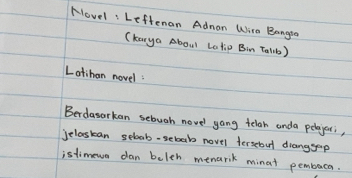 Novel : Leftenan Adnan Wira Bangsa
(Karya Abdul Latip Bin Talib)
Latihan novel :
Berdasarkan sebuah novel yang telah anda pelajari,
jelaskan sebab-sebab novel tersebut dianggap
istimewa dan boleh menarik minat pembaca.